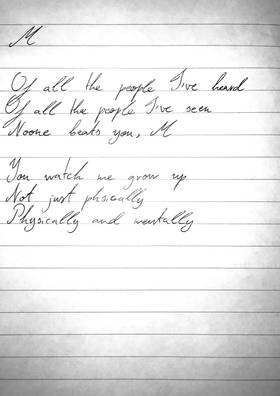 M
Of all the people I've heard
Of all the people I've seen
Noone beats you, M
You watch me grow up
Not just phsically
Physically and mentally